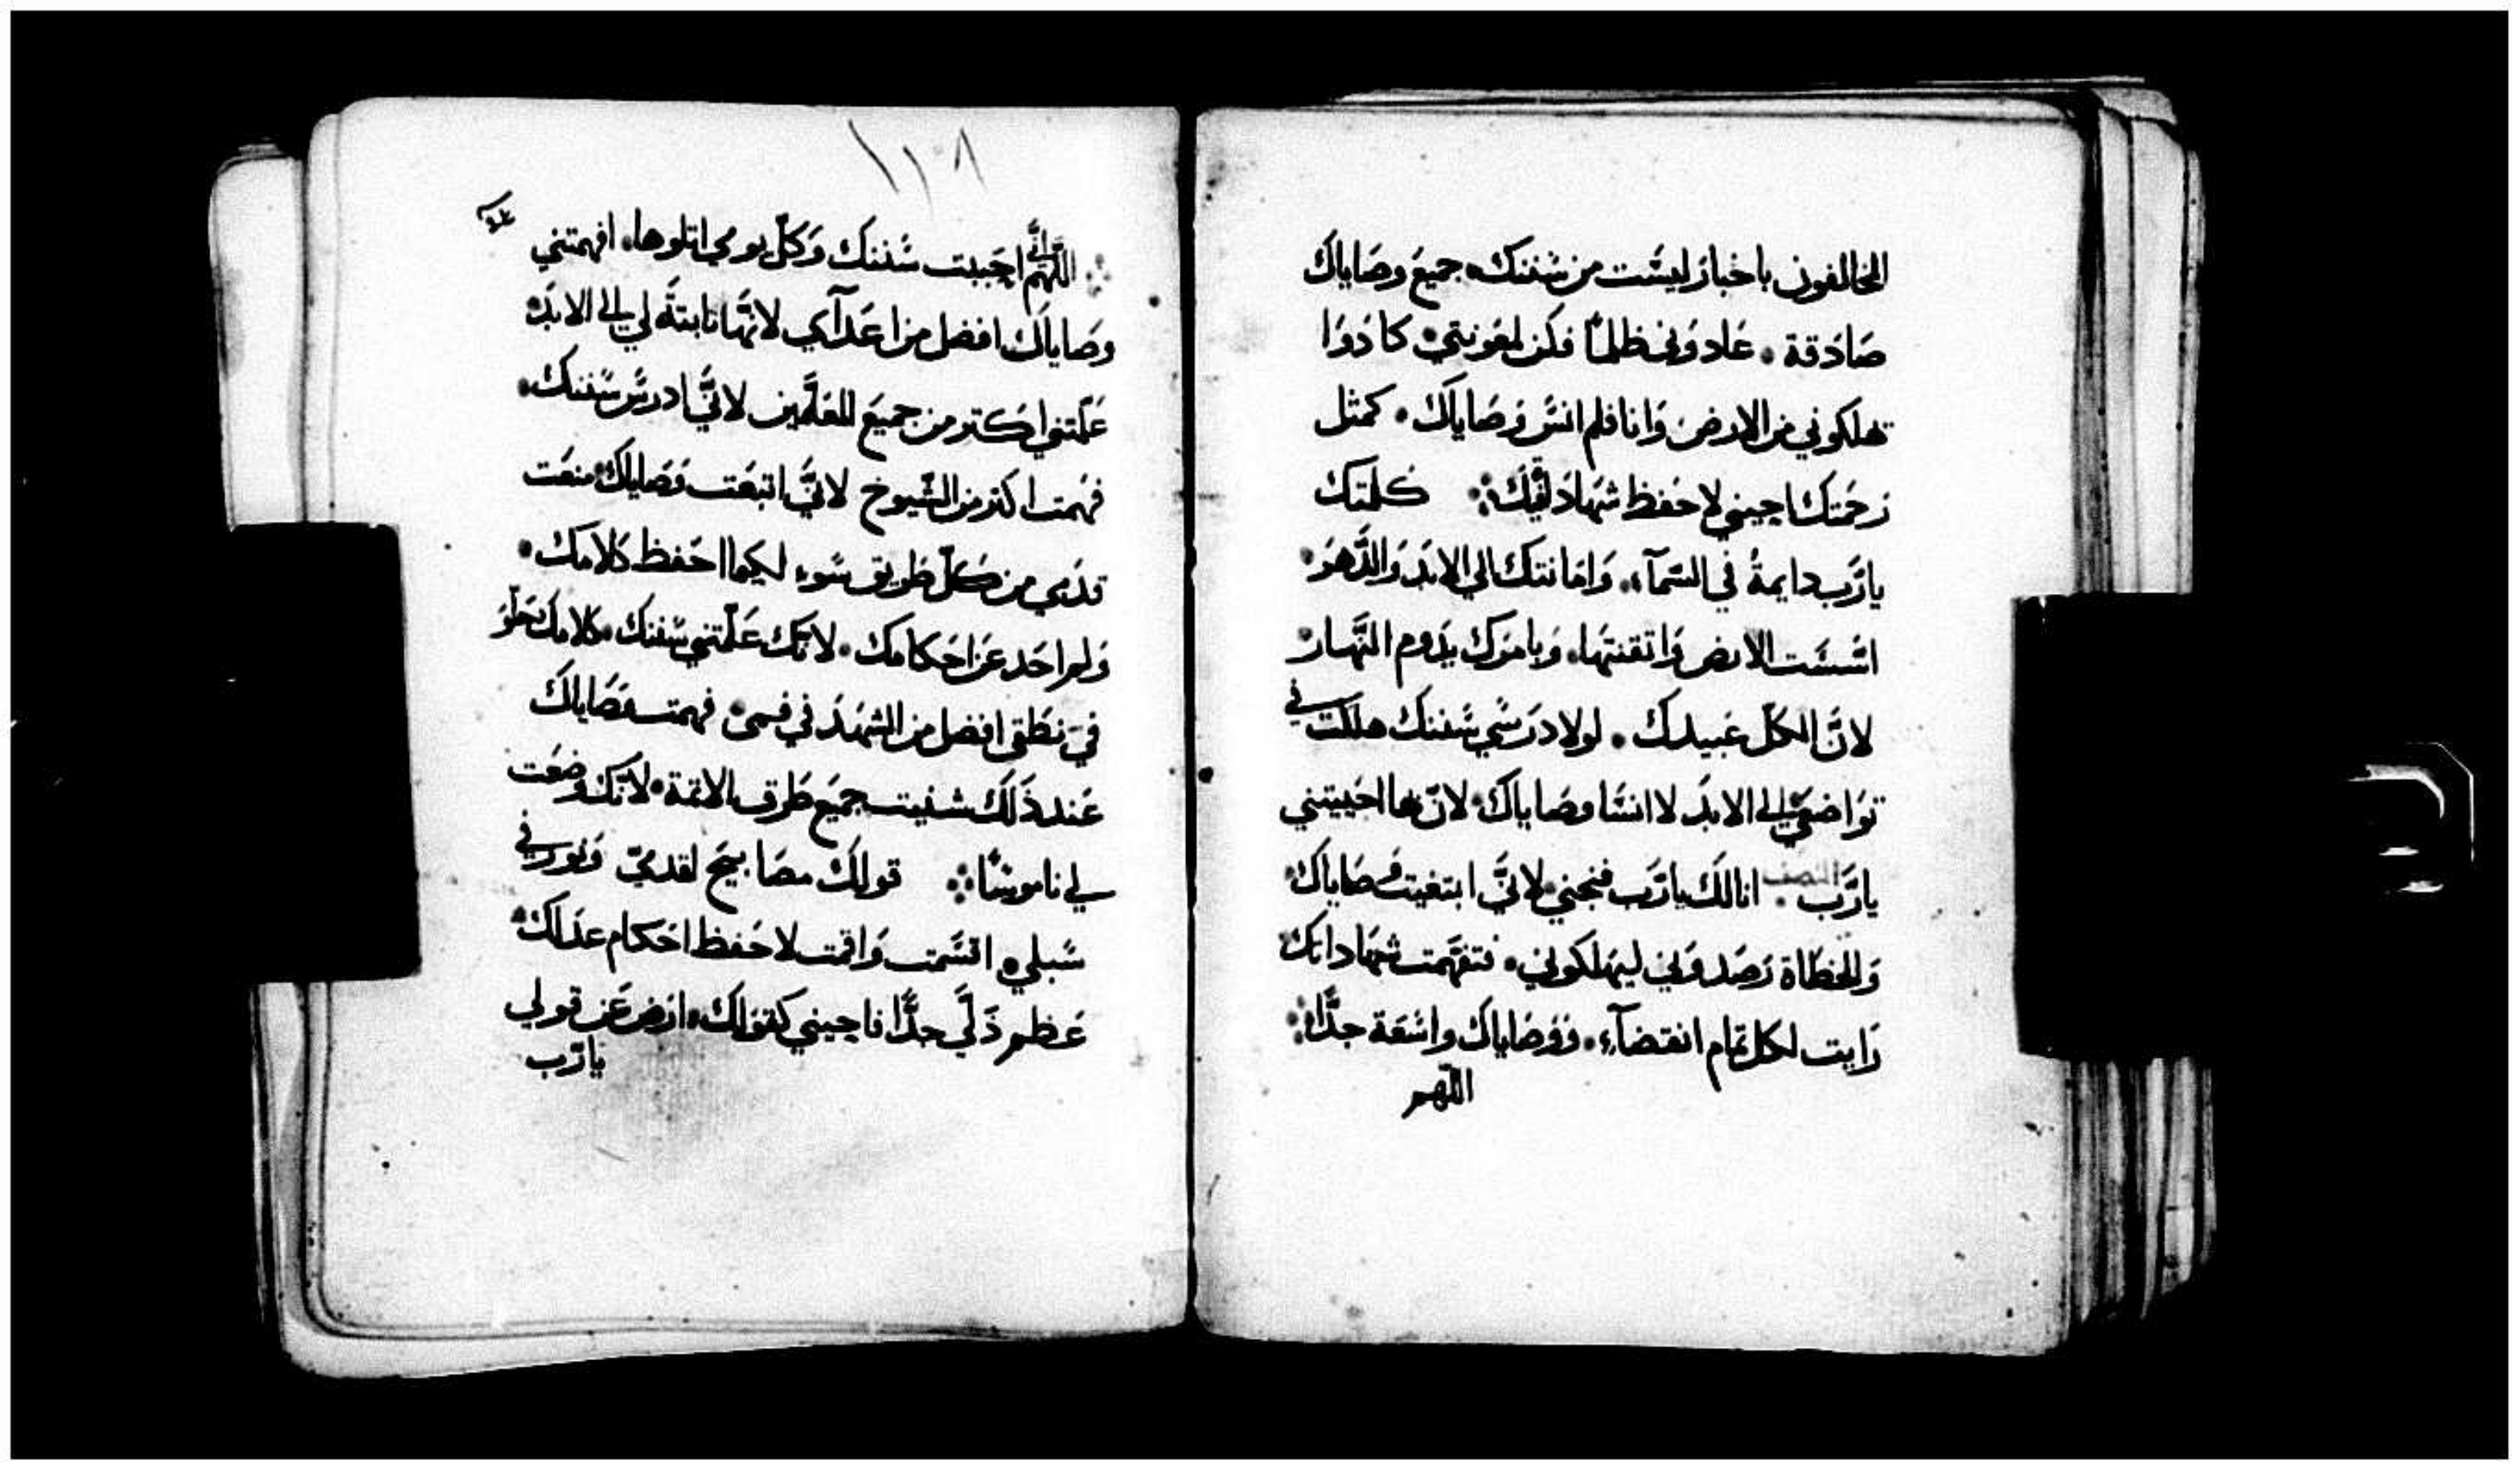 المخالفون باخبار ليست من سننك جميع وصاياك
صادقة. عادوني ظلمًا فكن لمعونتي كادوا
تهلكوني من الارض وانا فلم انس وصاياك. كمثل
رحمتك احيني لاحفظ شهادة فيك كلمتك
يا رَب دايمةً في السَمآء. وامانتك الي الابد والدَّهر
اسَّست الارض واتقنتها. وبامرك يدوم النَّهار
لانَّ الكلّ عبيدك. لولا درسي سننك هلكت في
تواضعي الي الابد لا انسا وصاياك لانّ بها احييتني
يا رَّب النصف. انا لك يا رَّب فنجني لانيَّ ابتغيت وصاياك
والخطاة رصدوني ليهلكوني. فتفهَّمت شهاداتك
رايت لكل تمام انقضآء. ووصاياك واسعة جدًّا
اللّهم
١١٠٨
اللّهم انّي احببت سننك وكلّ يومي اتلوها. افهمتني
وصاياك افضل من اعدآي لانَّها ثابتة لي الي الابد
علّمتني اكتر من جميع المعلّمين لانيَّ ادرس سننك.
فهمت اكتر من الشّيوخ لانيَّ اتبعت وصاياك منعت
قدمي من كلّ طريق سوء لكيما احفظ كلامك.
ولم احد عن احكامك. لانّك علّمتني سننك. كلامك تحلو
في نطقي افضل من الشهد في فمي فهمت وصاياك
عند ذلك شنيت جميع طرق الاثمة لانّك وضعت
لي ناموسًا قولك مصابيح لقدميّ ونور في
سبلي. اقسمت واقمت لاحفظ احكام عدلك
عظم ذلّي جدًّا فاحيني كقولك. ارض عن قولي
يا رّب